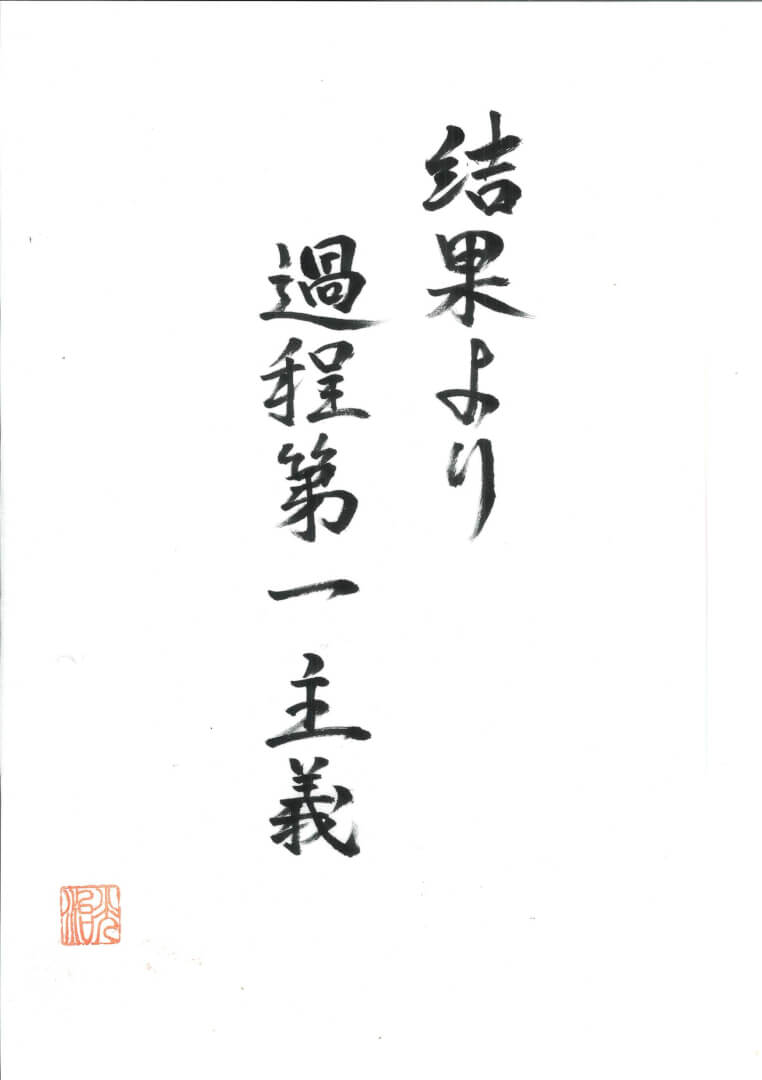 結果より
過程第一主義